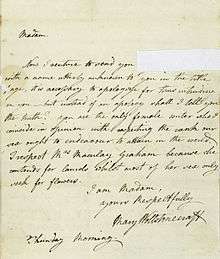 Madam,
Now I venture to send you
with a name utterly unknown to you in the title
page, it is necessary to apologize for thus intruding
on you — but instead of an apology shall I tell you
the truth? you are the only female writer who I
consider in opinion with respecting the rank our
sex ought to endeavour to attain in the world.
I respect Mrs Macaulay Graham because she
contends for laurels whilst most of her sex only
seek for flowers.
I am Madam,
yours Respectfully
Mary Wollstonecraft
Thursday Morning.